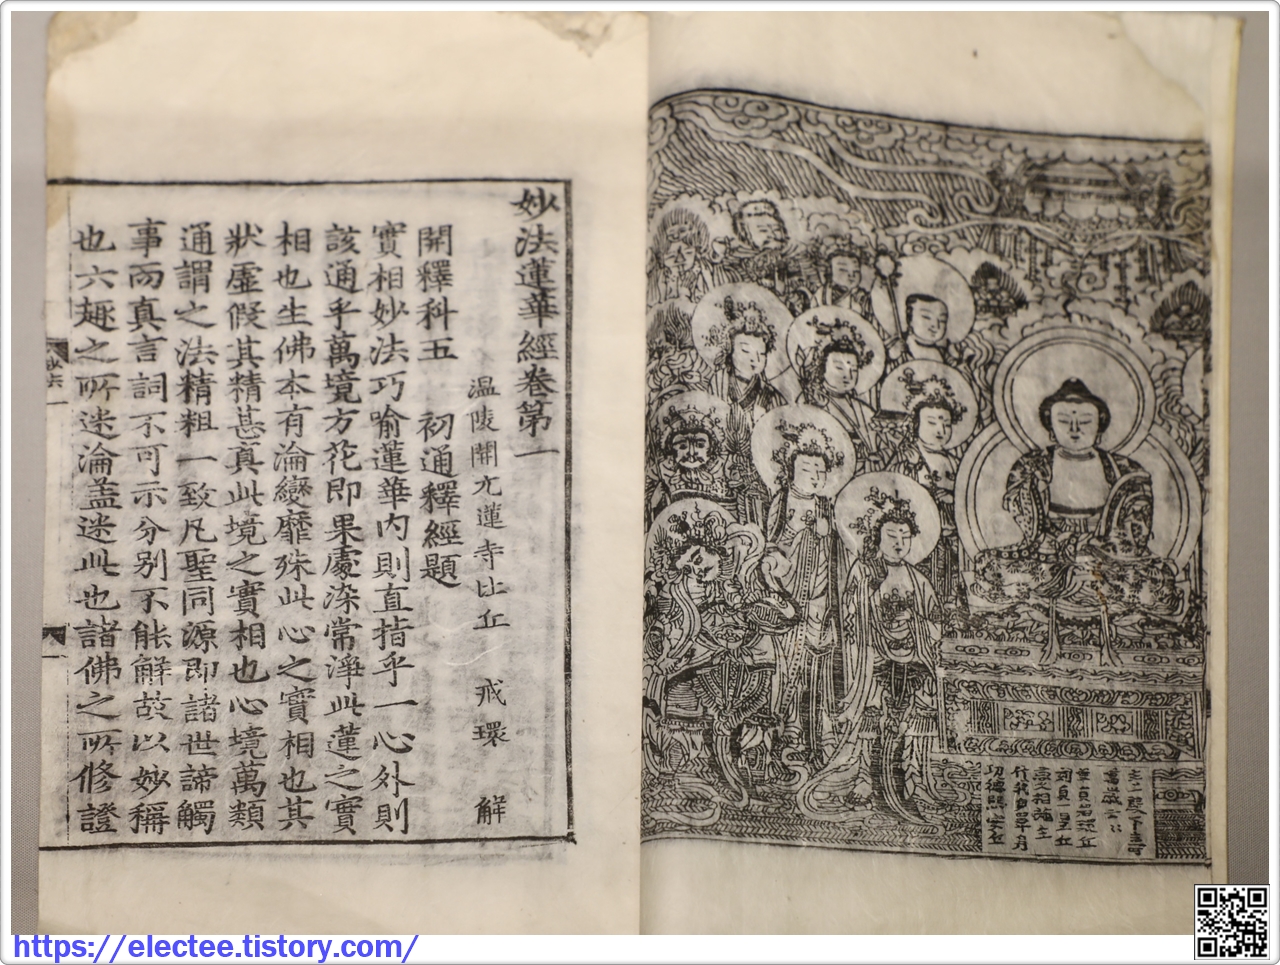 妙法蓮華經卷第一
温陵開元蓮寺比丘 戒環 解
開釋科五 初通釋經題
實相妙法巧喻蓮華內則直指乎一心外則
該通乎萬境方花即果處染常淨此蓮之實
相也生佛本有淪變靡殊此心之實相也其
狀虛假其精甚真此境之實相也心境萬類
通謂之法精粗一致凡聖同源即諸世諦觸
事而真言詞不可示分別不能解故以妙稱
也六趣之所迷淪盖迷此也諸佛之所修證
https://electee.tistory.com/